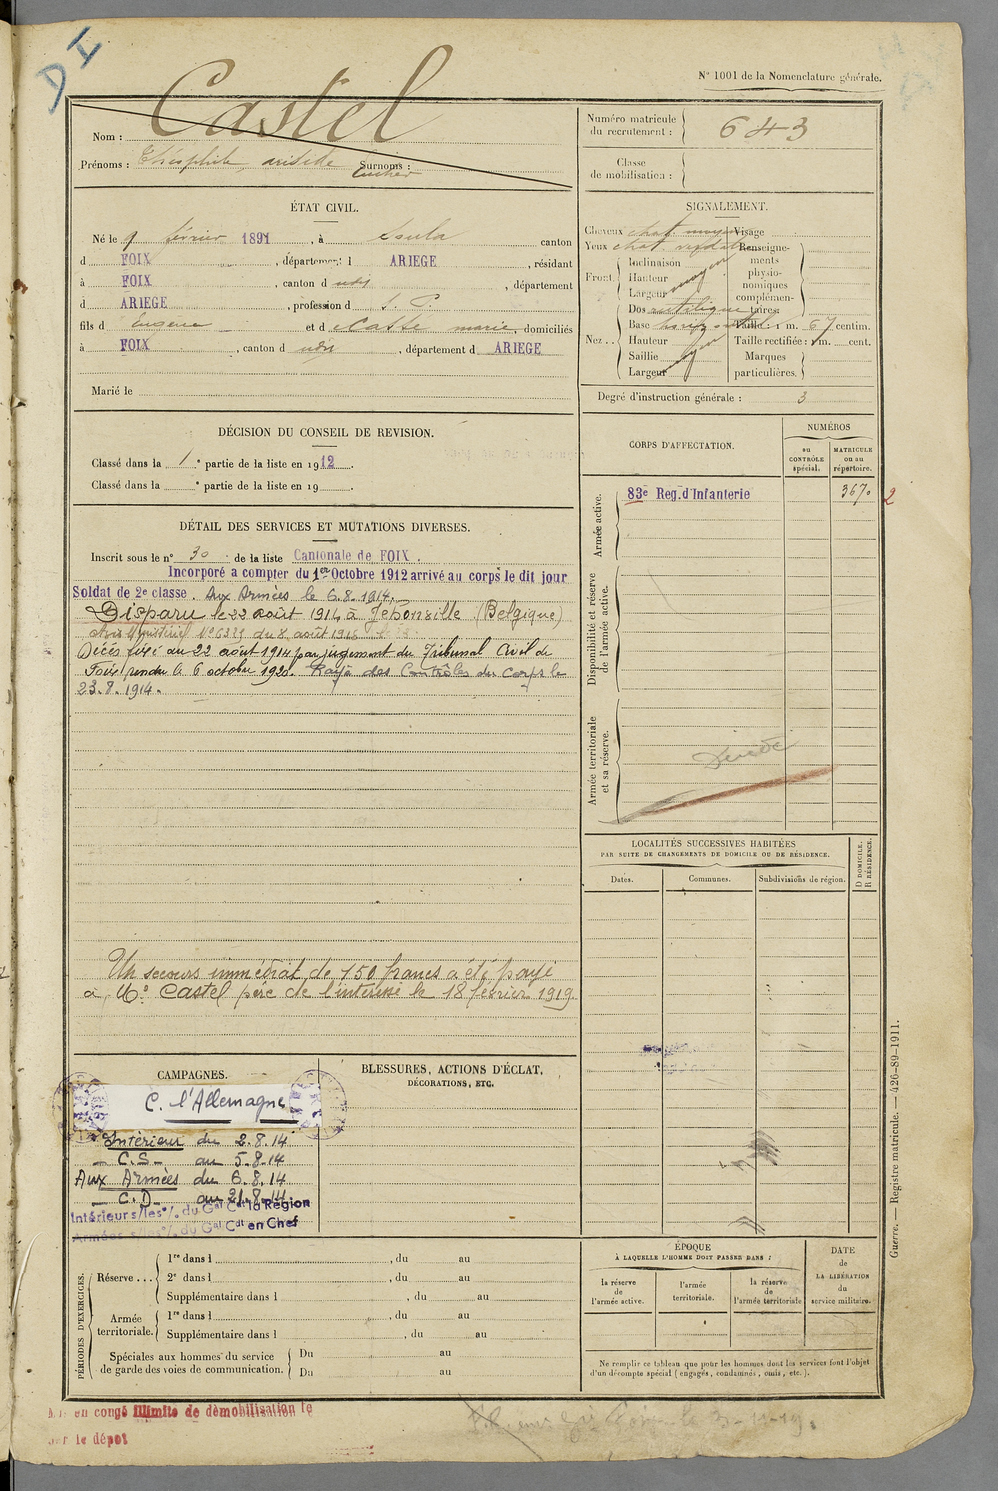 D I
N° 1001 de la Nomenclature générale.
Castel
Nom :
Prénoms : Théophile, aristide Surnoms :
Numéro matricule du recrutement : 643
Classe de mobilisation :
ÉTAT CIVIL.
Né le 9 février 1891, à Soula canton
d FOIX, département d ARIEGE, résidant
à FOIX, canton d udit, département
d ARIEGE, profession d S. P.
fils d Eugène et d Casté marie, domiciliés
à FOIX, canton d udit, département d ARIEGE
Marié le
DÉCISION DU CONSEIL DE REVISION.
Classé dans la 1e partie de la liste en 1912.
Classé dans la e partie de la liste en 19
DÉTAIL DES SERVICES ET MUTATIONS DIVERSES.
Inscrit sous le n° 30 de la liste Cantonale de FOIX.
Incorporé a compter du 1er Octobre 1912 arrivé au corps le dit jour
Soldat de 2e classe. Aux Armées le 6.8.1914.
Disparu le 22 août 1914 à Jehonville (Belgique)
du 8 août 1916
Décès fixé au 22 août 1914 par jugement du Tribunal Civil de
Foix rendu le 6 octobre 1920. Rayé des Contrôles du Corps le
23.8.1914.
Un secours immédiat de 150 francs a été payé
à Mr Castel père de l'intéressé le 18 février 1919.
CAMPAGNES.
C. l'Allemagne
Intérieur du 2.8.14
C.S. au 5.8.14
Aux Armées du 6.8.14
C.D. au 21.8.14
Intérieur s/les °/. du Gal Cdt la Région
Armées s/les °/. du Gal Cdt en Chef
BLESSURES, ACTIONS D'ÉCLAT,
DÉCORATIONS, ETC.
PÉRIODES D'EXERCICES.
Réserve...
1re dans l , du au
2e dans l , du au
Supplémentaire dans l , du au
Armée territoriale.
1re dans l , du au
Supplémentaire dans l , du au
Spéciales aux hommes du service
de garde des voies de communication.
Du au
Du au
SIGNALEMENT.
Cheveux chat. moyen Visage
Yeux chat. Renseignements physionomiques complémentaires:
Front.
Inclinaison
Hauteur moyen
Largeur
Nez..
Dos rectiligne
Base
Hauteur
Saillie moyen
Largeur
Taille : 1 m. 67 centim.
Taille rectifiée : 1 m. cent.
Marques particulières.
Degré d'instruction générale : 3
CORPS D'AFFECTATION.
NUMÉROS
au CONTRÔLE spécial.
MATRICULE ou au répertoire.
Armée active.
83e Reg. d'Infanterie 3670 2
Disponibilité et réserve de l'armée active.
Armée territoriale et sa réserve.
Décédé
LOCALITÉS SUCCESSIVES HABITÉES
PAR SUITE DE CHANGEMENTS DE DOMICILE OU DE RÉSIDENCE.
Dates. Communes. Subdivisions de région.
D DOMICILE. R RÉSIDENCE.
ÉPOQUE
À LAQUELLE L'HOMME DOIT PASSER DANS :
la réserve de l'armée active.
l'armée territoriale.
la réserve de l'armée territoriale
DATE de LA LIBÉRATION du service militaire.
Ne remplir ce tableau que pour les hommes dont les services font l'objet
d'un décompte spécial (engagés, condamnés, omis, etc.).
Guerre. — Registre matricule. — 426-89-1911.
en congé illimité de démobilisation le
par le dépôt